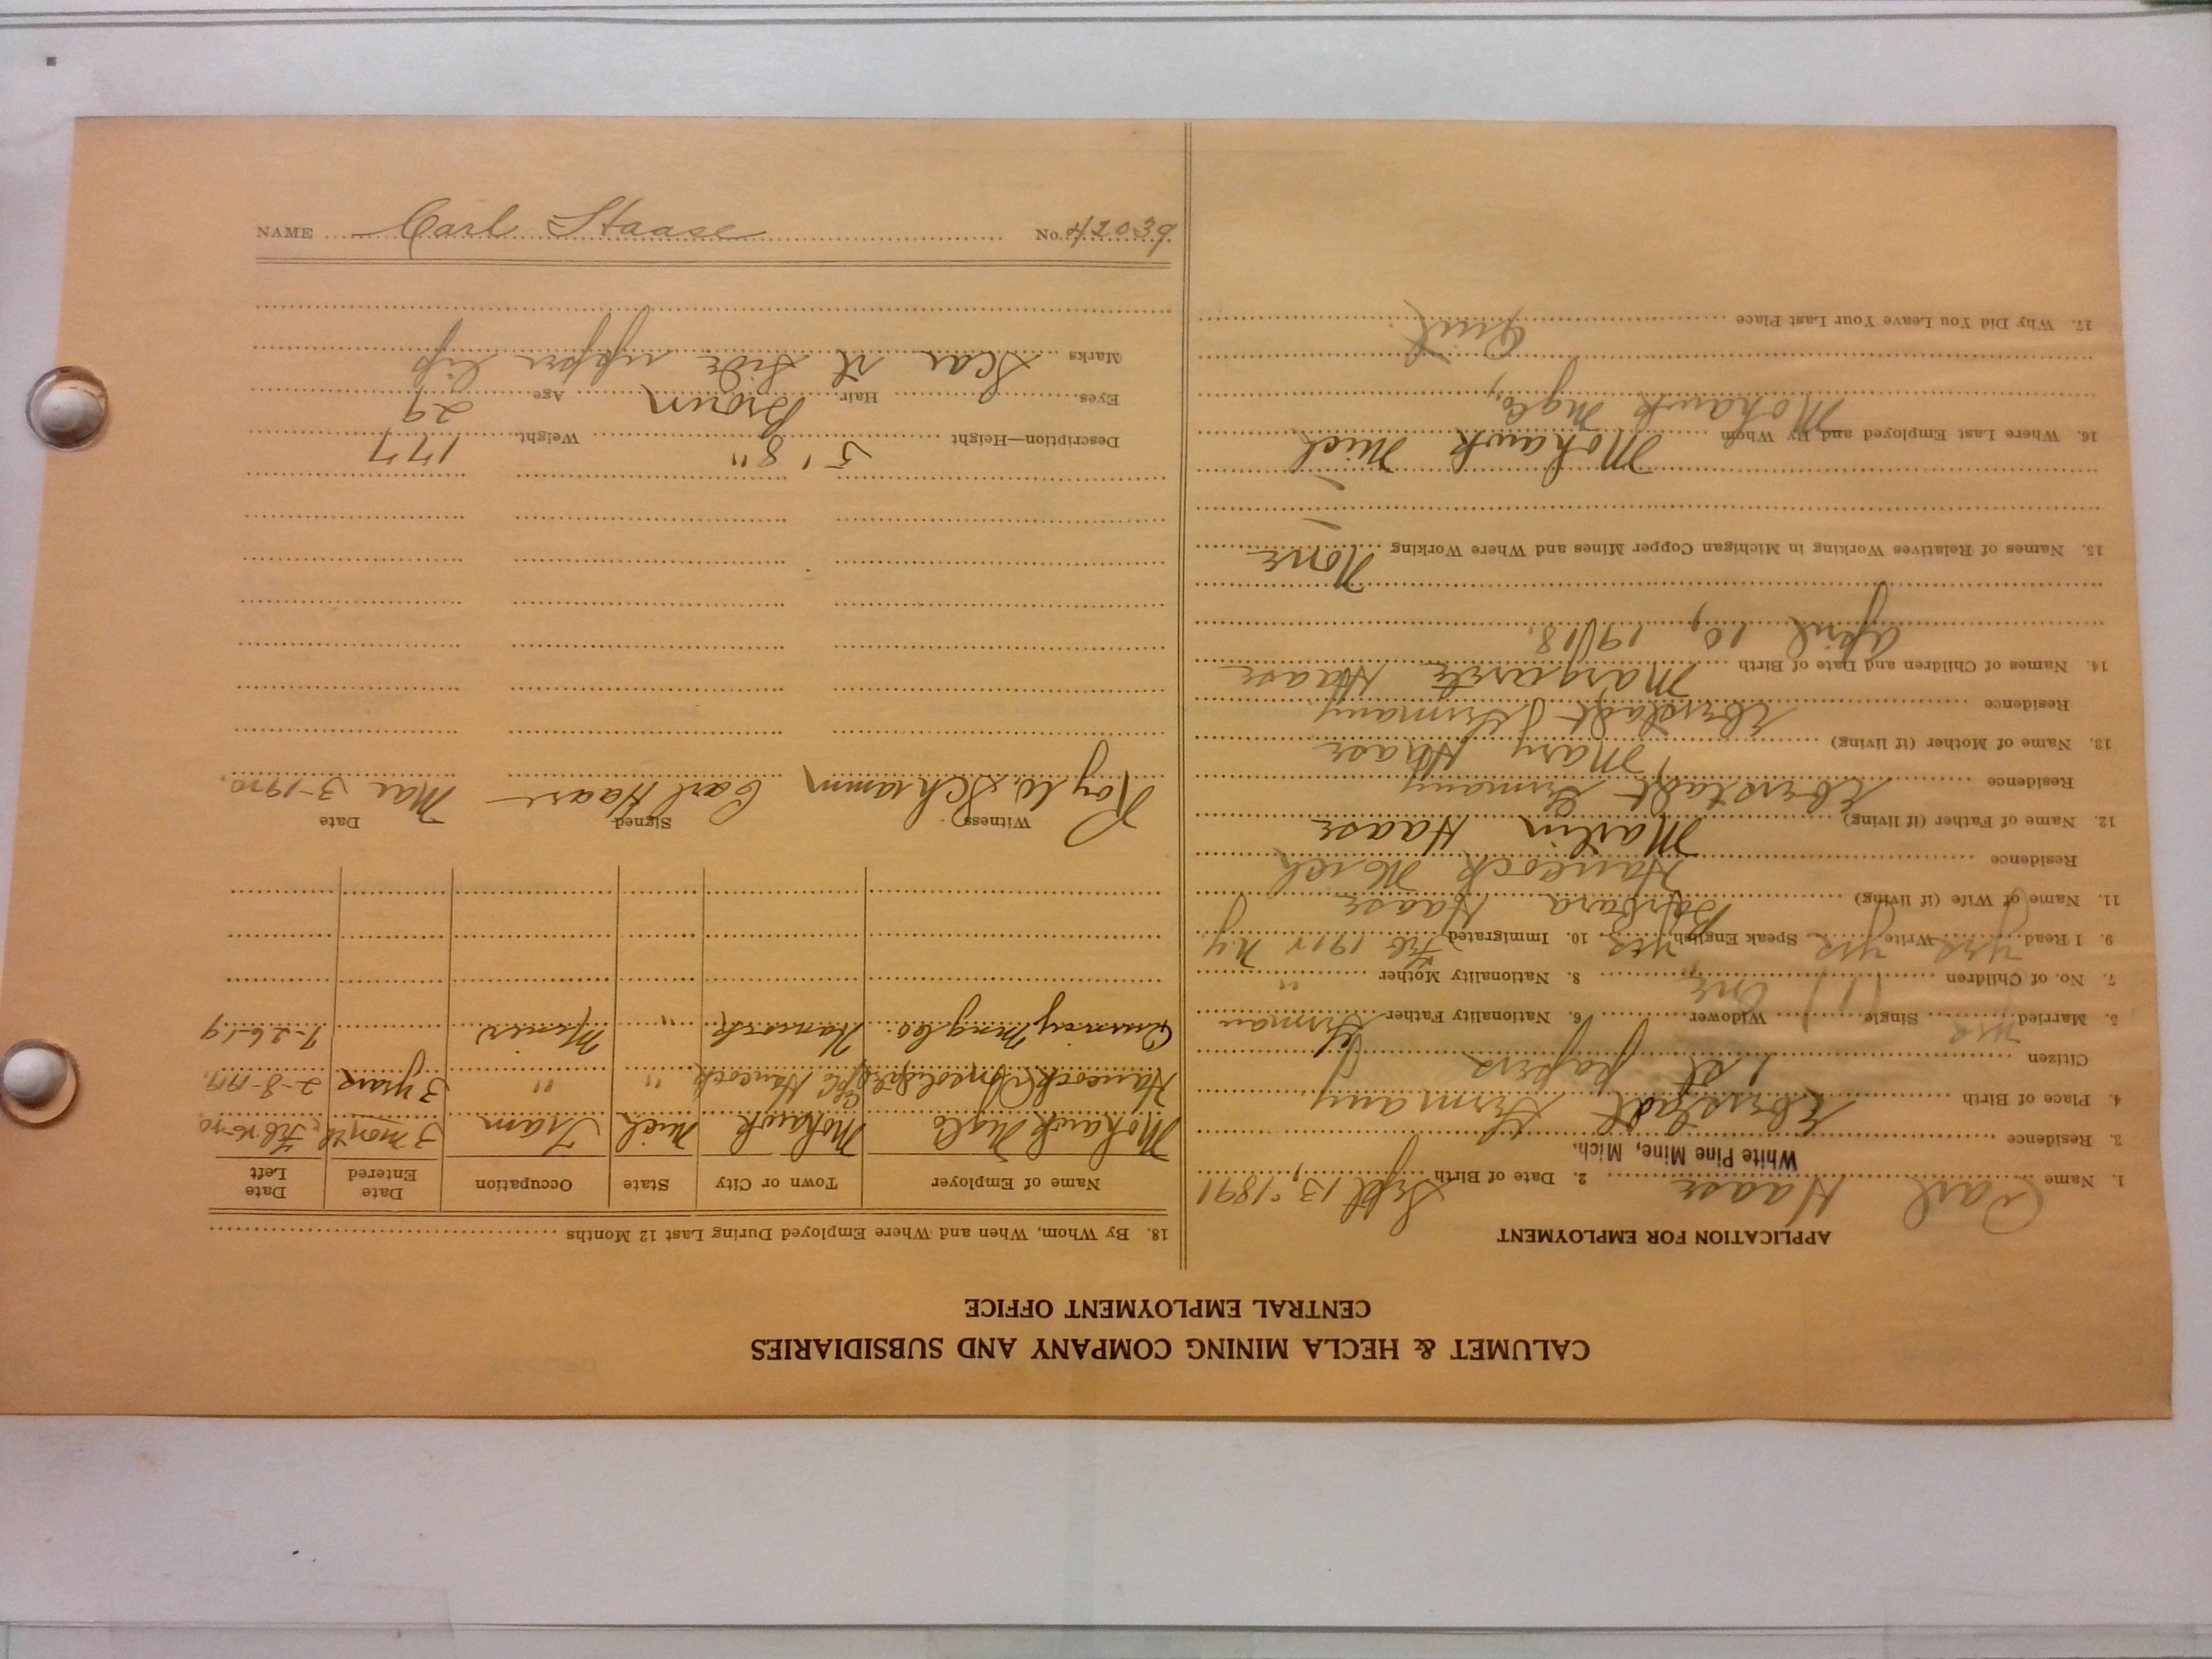 CALUMET & HECLA MINING COMPANY AND SUBSIDIARIES
CENTRAL EMPLOYMENT OFFICE
APPLICATION FOR EMPLOYMENT
1. Name Carl Haase 2. Date of Birth Sept 13, 1891
White Pine Mine, Mich.
3. Residence
4. Place of Birth Eberstadt Germany
Citizen 1st papers
5. Married yes Single Widower 6. Nationality Father German
7. No. of Children One 8. Nationality Mother "
9. I Read yes Write yes Speak English yes 10. Immigrated Feb 191 N.Y
11. Name of Wife (if living) Barbara Haase
Residence Hancock Mich
12. Name of Father (if living) Martin Haase
Residence Eberstadt Germany
13. Name of Mother (if living) Mary Haase
Residence Eberstadt Germany
14. Names of Children and Date of Birth Margarete Haase
April 10, 1918.
15. Names of Relatives Working in Michigan Copper Mines and Where Working None
16. Where Last Employed and By Whom Mohawk Mich
Mohawk Mg Co,
17. Why Did You Leave Your Last Place Quit.
18. By Whom, When and Where Employed During Last 12 Months
Name of Employer Town or City State Occupation Date Entered Date Left
Mohawk Mg Co Mohawk Mich Tram 3 month Feb
Hancock Consolidated Hancock " " 3 years 2-8-1919.
Quincy Mng Co. Hancock " Miner 7-26-19
Witness Signed Date
Roy W. Schramm Carl Haase Mar 3-1920.
Description—Height 5' 8" Weight 177
Eyes Hair Brown Age 29
Marks Scar rt side upper lip
NAME Carl Haase No. 42039